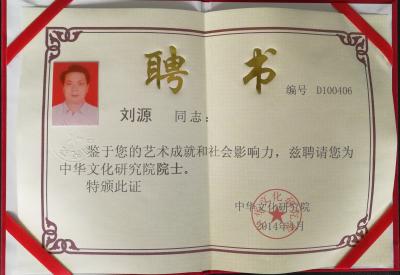 聘 书
编号 D100406
刘源 同志：
鉴于您的艺术成就和社会影响力，兹聘请您为
中华文化研究院院士。
特颁此证
中华文化研究院
2014年4月